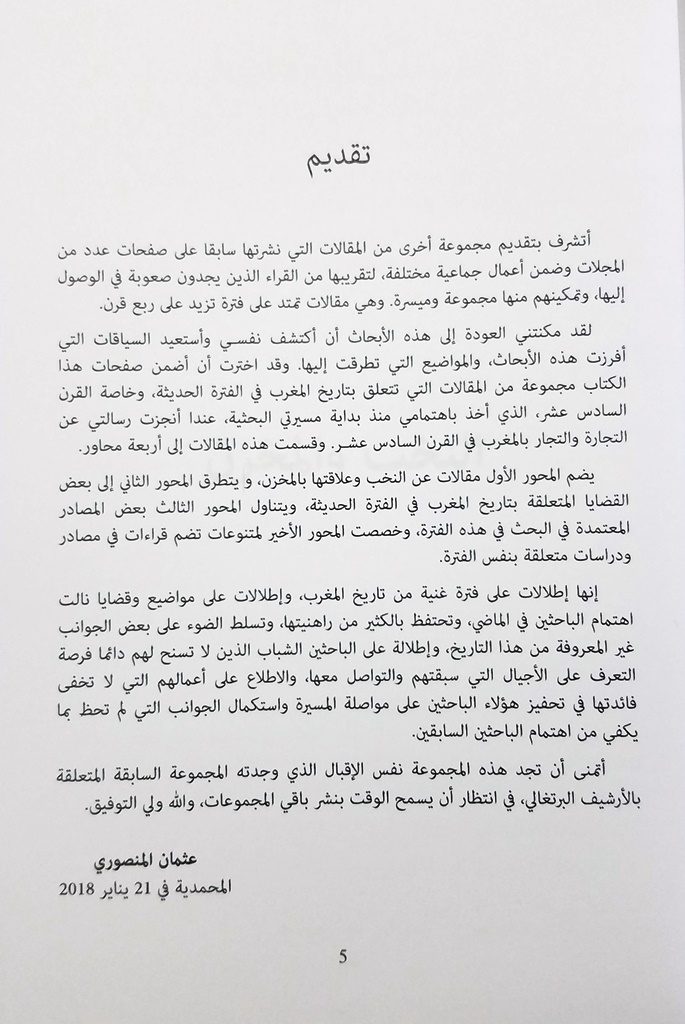 تقديم
أتشرف بتقديم مجموعة أخرى من المقالات التي نشرتها سابقا على صفحات عدد من
المجلات وضمن أعمال جماعية مختلفة، لتقريبها من القراء الذين يجدون صعوبة في الوصول
إليها، وتمكينهم منها مجموعة وميسرة. وهي مقالات تمتد على فترة تزيد على ربع قرن.
لقد مكنتني العودة إلى هذه الأبحاث أن أكتشف نفسي وأستعيد السياقات التي
أفرزت هذه الأبحاث، والمواضيع التي تطرقت إليها. وقد اخترت أن أضمن صفحات هذا
الكتاب مجموعة من المقالات التي تتعلق بتاريخ المغرب في الفترة الحديثة، وخاصة القرن
السادس عشر، الذي أخذ باهتمامي منذ بداية مسيرتي البحثية، عندا أنجزت رسالتي عن
التجارة والتجار بالمغرب في القرن السادس عشر. وقسمت هذه المقالات إلى أربعة محاور.
يضم المحور الأول مقالات عن النخب وعلاقتها بالمخزن، و يتطرق المحور الثاني إلى بعض
القضايا المتعلقة بتاريخ المغرب في الفترة الحديثة، ويتناول المحور الثالث بعض المصادر
المعتمدة في البحث في هذه الفترة، وخصصت المحور الأخير لمتنوعات تضم قراءات في مصادر
ودراسات متعلقة بنفس الفترة.
إنها إطلالات على فترة غنية من تاريخ المغرب، وإطلالات على مواضيع وقضايا نالت
اهتمام الباحثين في الماضي، وتحتفظ بالكثير من راهنيتها، وتسلط الضوء على بعض الجوانب
غير المعروفة من هذا التاريخ، وإطلالة على الباحثين الشباب الذين لا تسنح لهم دائما فرصة
التعرف على الأجيال التي سبقتهم والتواصل معها، والاطلاع على أعمالهم التي لا تخفى
فائدتها في تحفيز هؤلاء الباحثين على مواصلة المسيرة واستكمال الجوانب التي لم تحظ بما
يكفي من اهتمام الباحثين السابقين.
أتمنى أن تجد هذه المجموعة نفس الإقبال الذي وجدته المجموعة السابقة المتعلقة
بالأرشيف البرتغالي، في انتظار أن يسمح الوقت بنشر باقي المجموعات، والله ولي التوفيق.
عثمان المنصوري
المحمدية في 21 يناير 2018
5